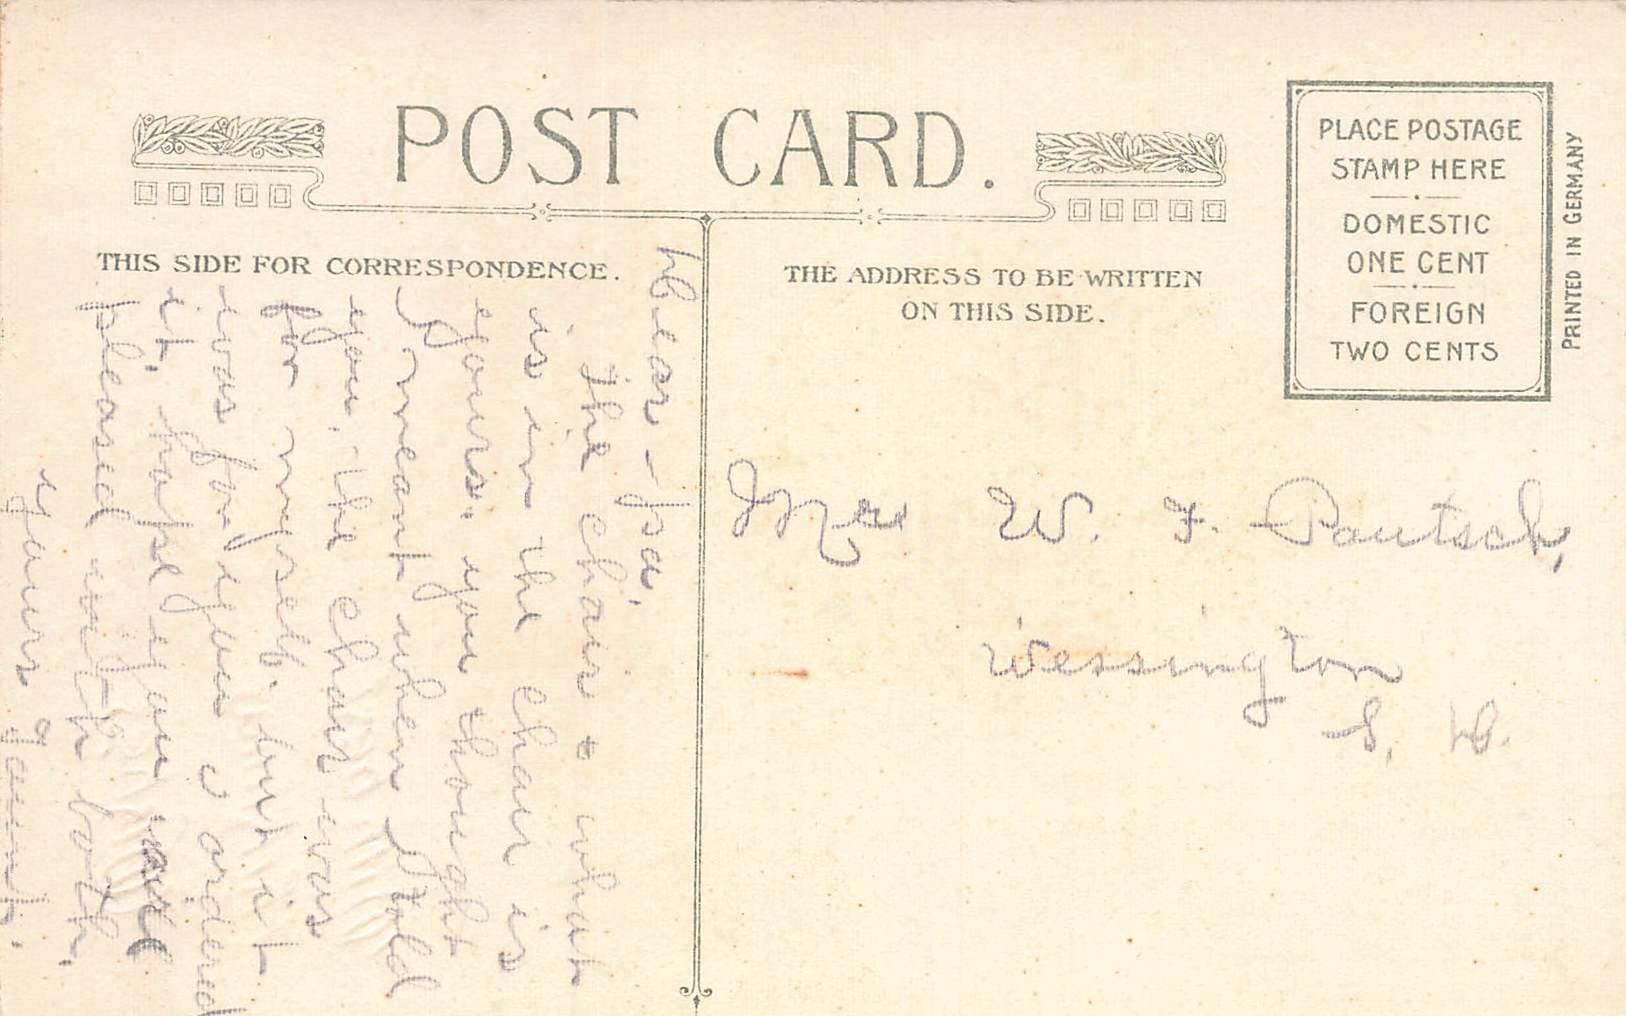 POST CARD.
THIS SIDE FOR CORRESPONDENCE.
THE ADDRESS TO BE WRITTEN
ON THIS SIDE.
PLACE POSTAGE
STAMP HERE
DOMESTIC
ONE CENT
FOREIGN
TWO CENTS
PRINTED IN GERMANY
Dear
the chair & what
is in the chair is
yours. you thought
I meant when I told
you, the chair was
for myself, but it
was for you i ordered
it, hope you will
pleased with both.
yours Gaunt.
Mrs W. F. Pautsch,
Wessington
S. D.